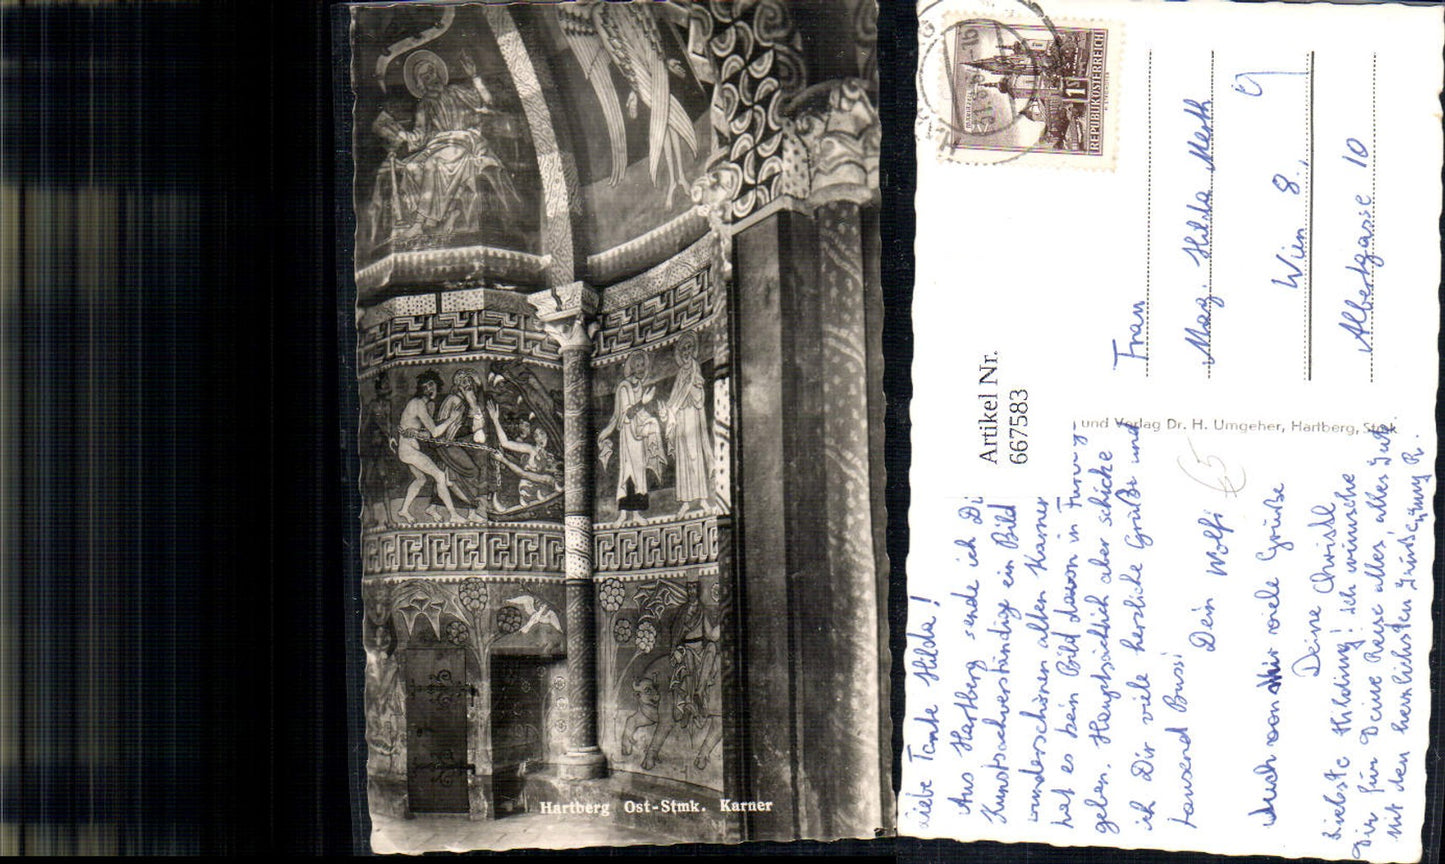 Hartberg Ost-Stmk. Karner
REPUBLIK ÖSTERREICH
1
Frau
Mag. Hilda
Wien 8.,
Albertgasse 10
Artikel Nr.
667583
und Verlag Dr. H. Umgeher, Hartberg, Stmk
Liebe Tante Hilda!
Aus Hartberg sende ich Di
Kunstsachverständige ein Bild
wunderschönen alten Karner
hat es kein Bild davon in
geben. Hauptsächlich aber schicke
ich Dir viele herzliche Grüße und
tausend Bussi
Dein Wolfi
Auch von Mir viele Grüße
Deine Christl
Liebste Hilding! ich wünsche
Dir für Deine Reise alles alles Gute
Mit den herzlichsten Grüßen